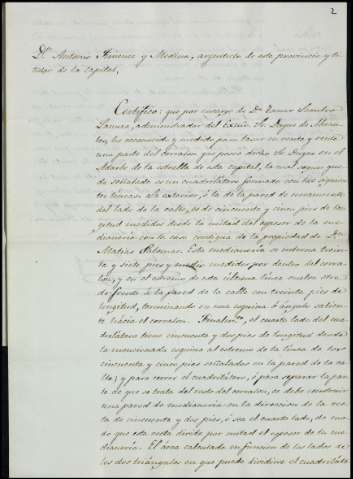 2
Dn. Antonio Jimenez y Medina, arquitecto de esta provincia y ti-
tular de la capital.
Certifico: que por encargo de Dn. Javier Sanchez
Lamas, administrador del Excmo. Sr. Duque de
he reconocido y medido para tasar en venta y renta
una parte del corralon que posee dicho Sr. Duque en el
de la de esta capital, la cual segun que-
da señalado es un cuadrilatero formado con las siguien-
tes lineas: La exterior, ó la de pared de
del lado de la calle, es de cincuenta y cinco pies de lon-
gitud medidos desde la mitad del espesor de la me-
dianería con la casa contigua de la propiedad de Dn.
Matias. Esta medianería se interna trein-
ta y siete pies y medio medidos por dentro del corra-
lon; y en el estremo de esta última línea vuelve otra
de frente á la pared de la calle con treinta pies de
longitud, terminando en una esquina ó ángulo salien-
te hácia el corralon. Finalmte., el cuarto lado del cua-
drilatero tiene cincuenta y dos pies de longitud desde
la mencionada esquina al estremo de la línea de los
cincuenta y cinco pies señalados en la pared de la ca-
lle; y para cerrar el cuadrilatero, ó para separar la par-
te de que se trata del resto del corralon, se debe construir
una pared de medianería en la direccion de la rec-
ta de cincuenta y dos pies, ó sea el cuarto lado, de mo-
do que esta recta divida por mitad el espesor de la me-
dianería. El área calculada en funcion de los lados de
los dos triángulos en que puede dividirse el cuadrilate-